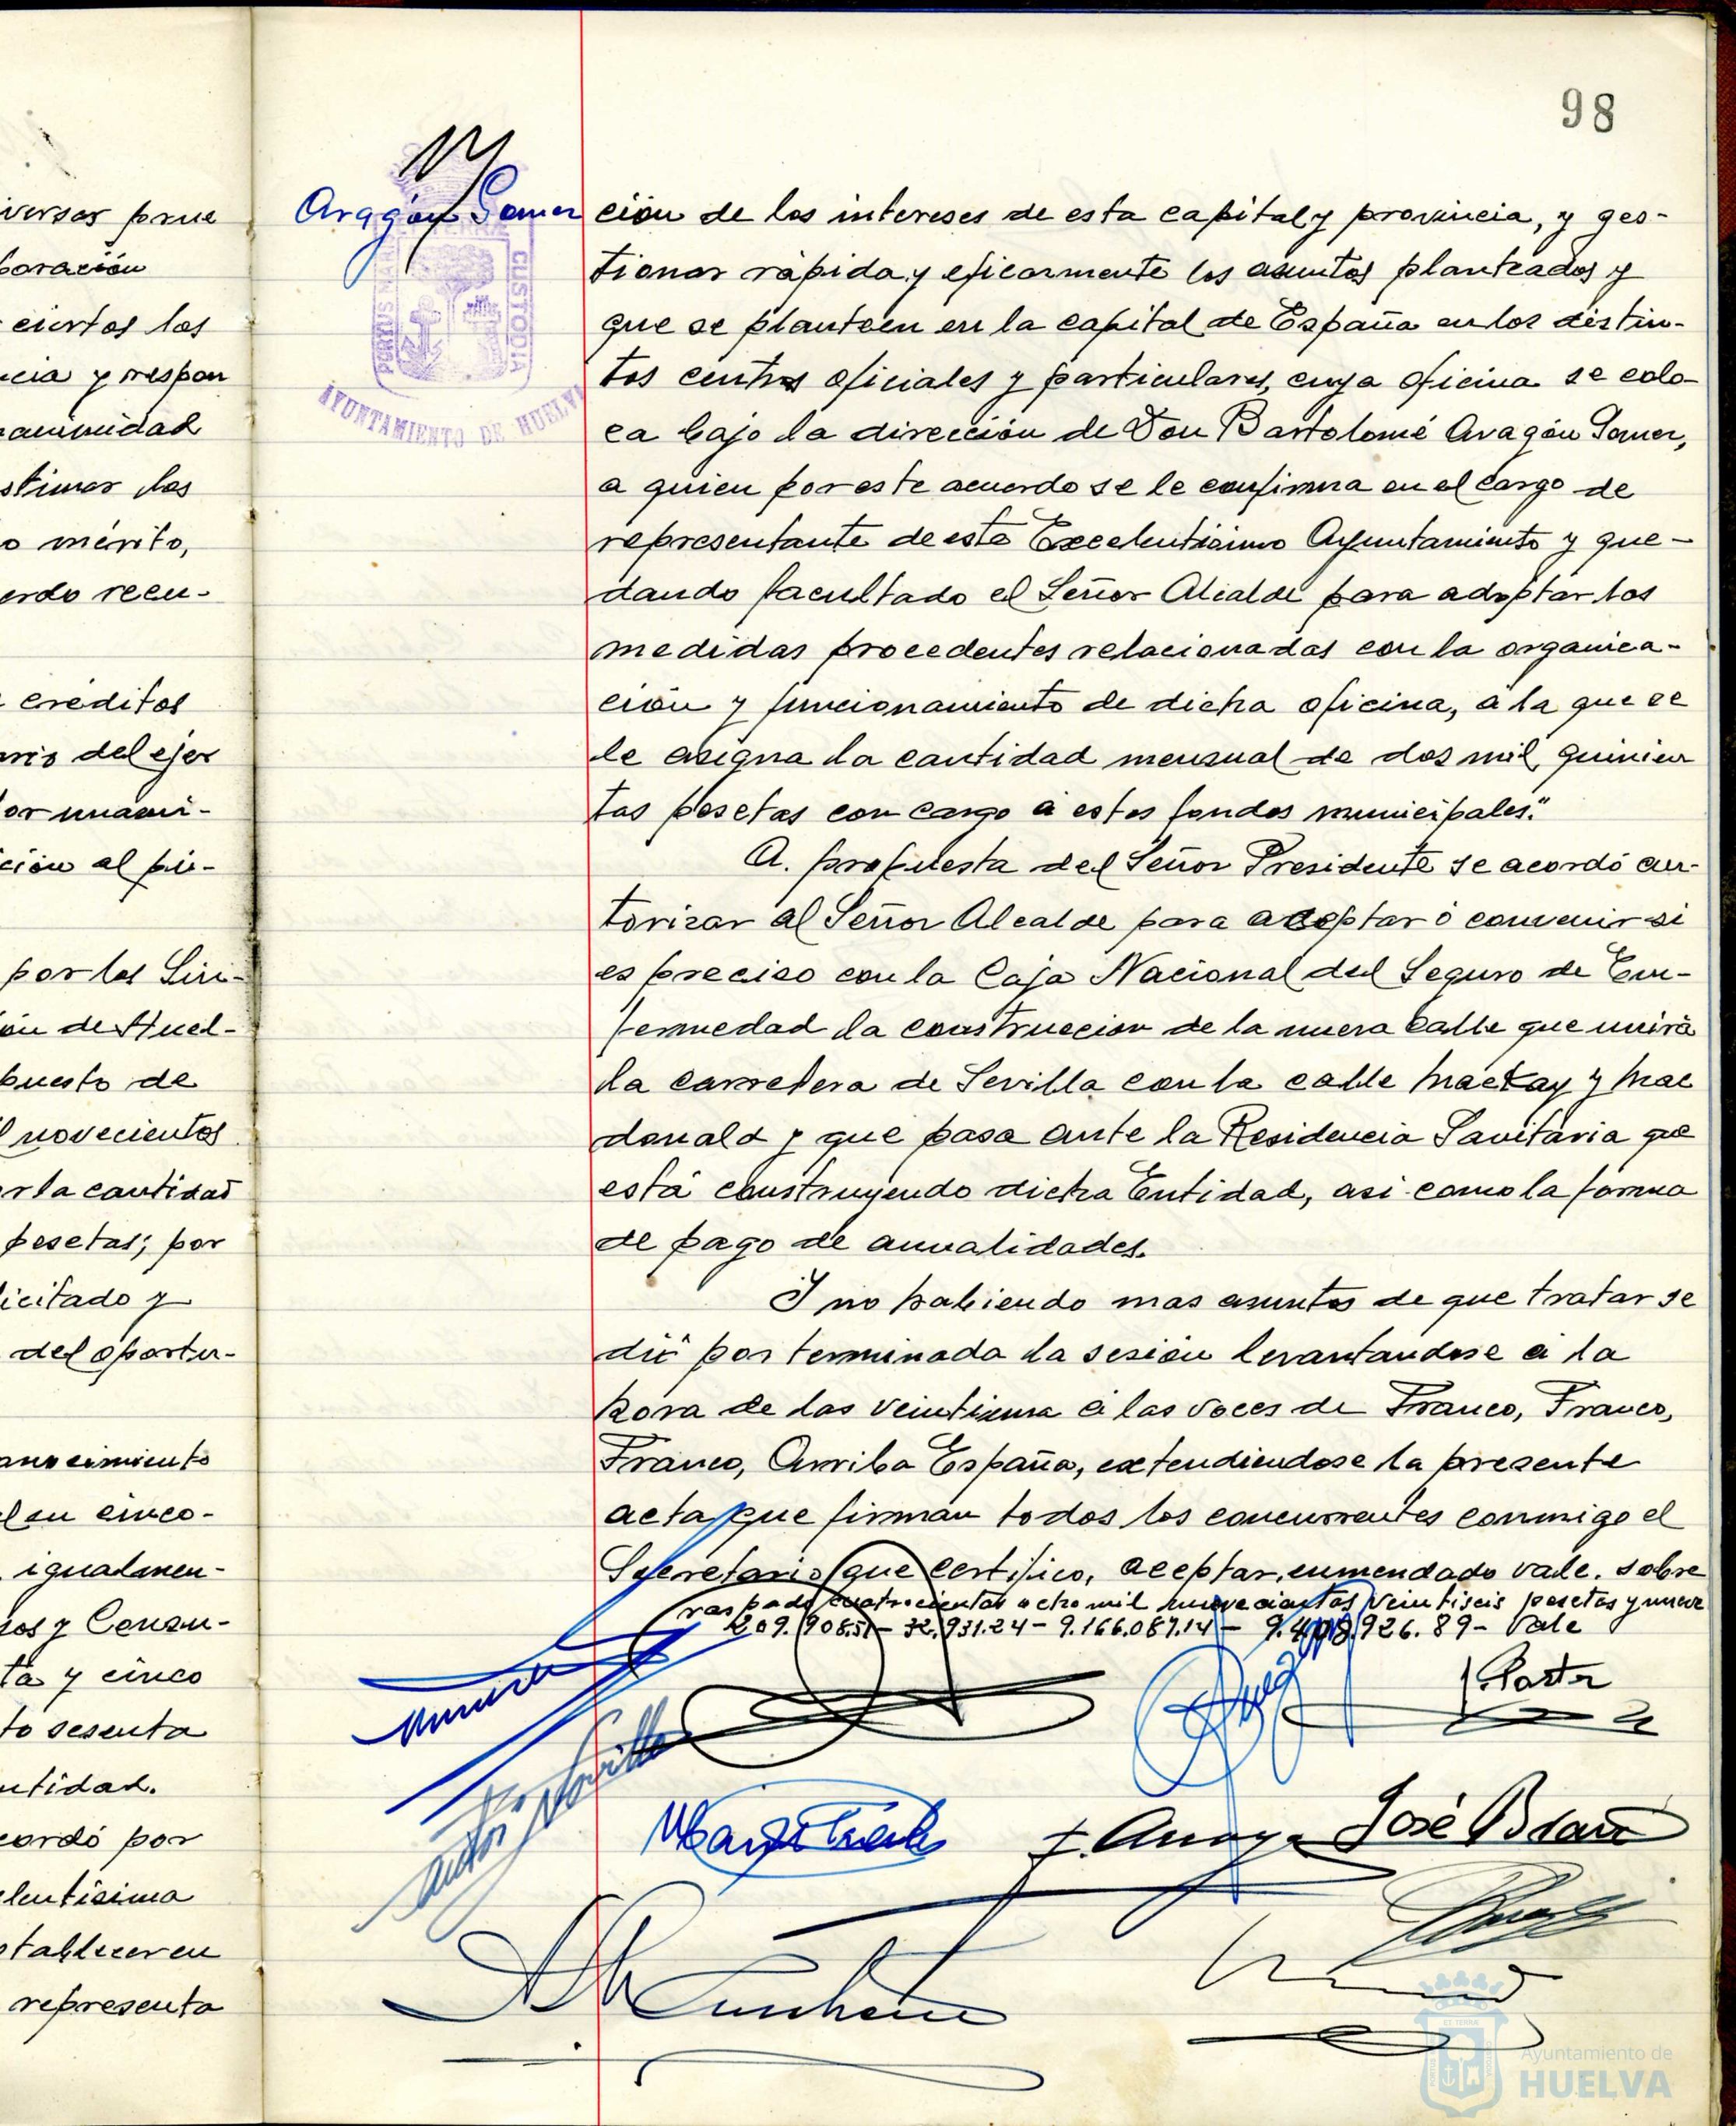 98
versos prue
boración
ciertos los
cia y respon
animidad
stimar las
o mérito,
erdo recu-
créditos
del ejer
or unani-
ción al pú-
por los Sin-
ón de Huel-
puesto de
novecientos
r la cantidad
pesetas; por
icitado y
del oportu-
conocimiento
cinco-
igualmen-
sos y Censu-
ta y cinco
to sesenta
ntidad.
cordó por
lentisima
stablecer en
representa
Aragón Gomez
PORTUS MARIS
CUSTODIA
AYUNTAMIENTO DE HUELVA
ción de los intereses de esta capital y provincia, y ges-
tionar rápida y eficazmente los asuntos planteados y
que se planteen en la capital de España en los distin-
tos centros oficiales y particulares, cuya oficina se colo-
ca bajo la dirección de Don Bartolomé Aragón Gomez,
a quien por este acuerdo se le confirma en el cargo de
representante de este Excelentísimo Ayuntamiento y que-
dando facultado el Señor Alcalde para adoptar las
medidas procedentes relacionadas con la organiza-
ción y funcionamiento de dicha oficina, a la que se
le asigna la cantidad mensual de dos mil quinien
tas pesetas con cargo a estos fondos municipales."
A. propuesta del Señor Presidente se acordó au-
torizar al Señor Alcalde para aceptar ó convenir si
es preciso con la Caja Nacional del Seguro de En-
fermedad la construccion de la nueva calle que unirá
la carretera de Sevilla con la calle Mackay y Mac
donald y que pasa ante la Residencia Sanitaria que
está construyendo dicha Entidad, asi como la forma
de pago de anualidades.
Y no habiendo mas asuntos de que tratar se
dió por terminada la sesión levantandose a la
hora de las veintiuna a las voces de Franco, Franco,
Franco, Arriba España, extendiendose la presente
acta que firman todos los concurrentes conmigo el
Secretario que certifico, aceptar, enmendado vale. sobre
raspado cuatrocientas ocho mil nuevecientas veintiseis pesetas y nueve
209.908.51 - 32.931.24 - 9.166.087.14 - 9.408.926.89 - Vale
José Blanco
Ayuntamiento de
HUELVA